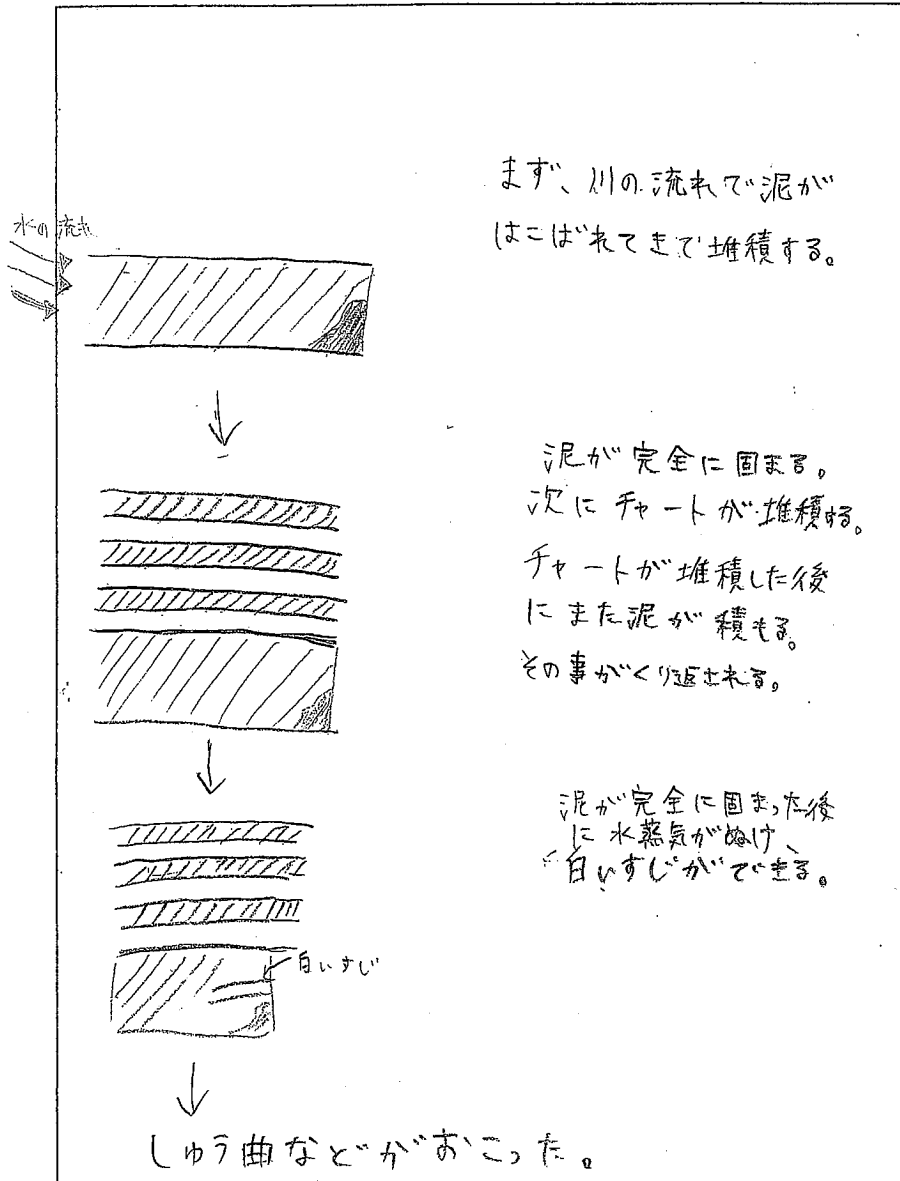 まず、川の流れで泥が
はこばれてきで堆積する。
水の流れ
泥が完全に固まる。
次にチャートが堆積する。
チャートが堆積した後
にまた泥が積もる。
その事がくり返される。
泥が完全に固まった後
に水蒸気がぬけ、
白いすじができる。
白いすじ
しゅう曲などがおこった。